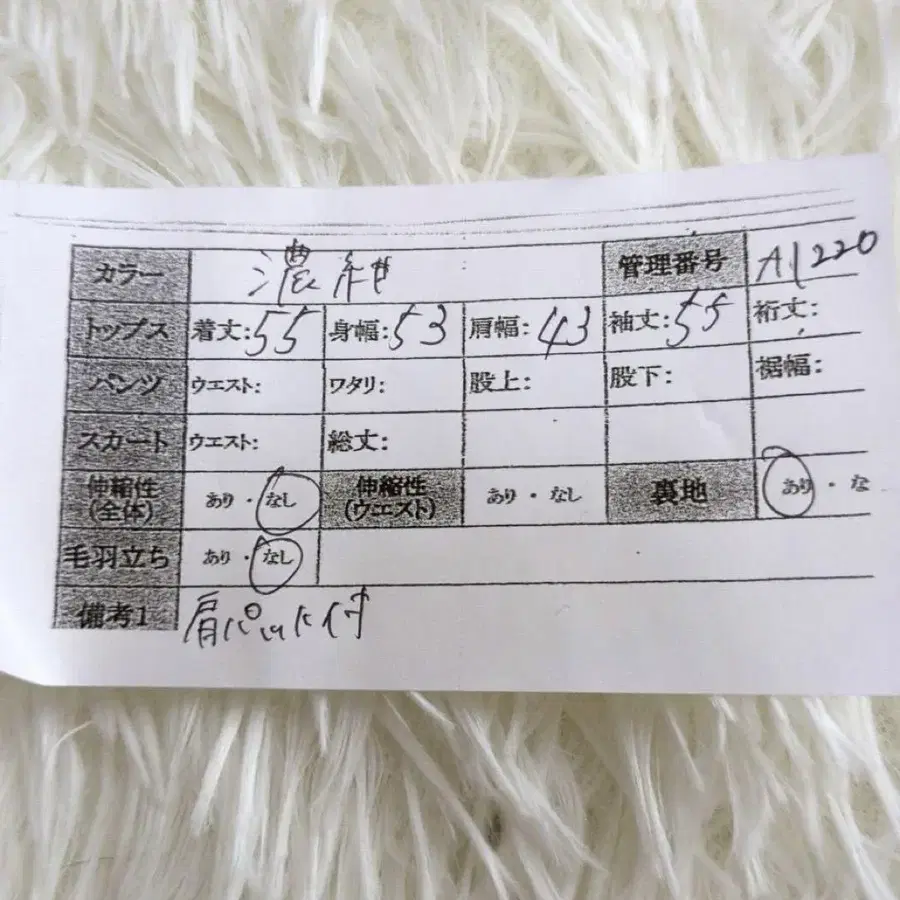 カラー 濃紺 管理番号 A1220
トップス 着丈:55 身幅:53 肩幅:43 袖丈:55 裄丈:
パンツ ウエスト: ワタリ: 股上: 股下: 裾幅:
スカート ウエスト: 総丈:
伸縮性(全体) あり・なし 伸縮性(ウエスト) あり・なし 裏地 あり・な
毛羽立ち あり・なし
備考1 肩パット付